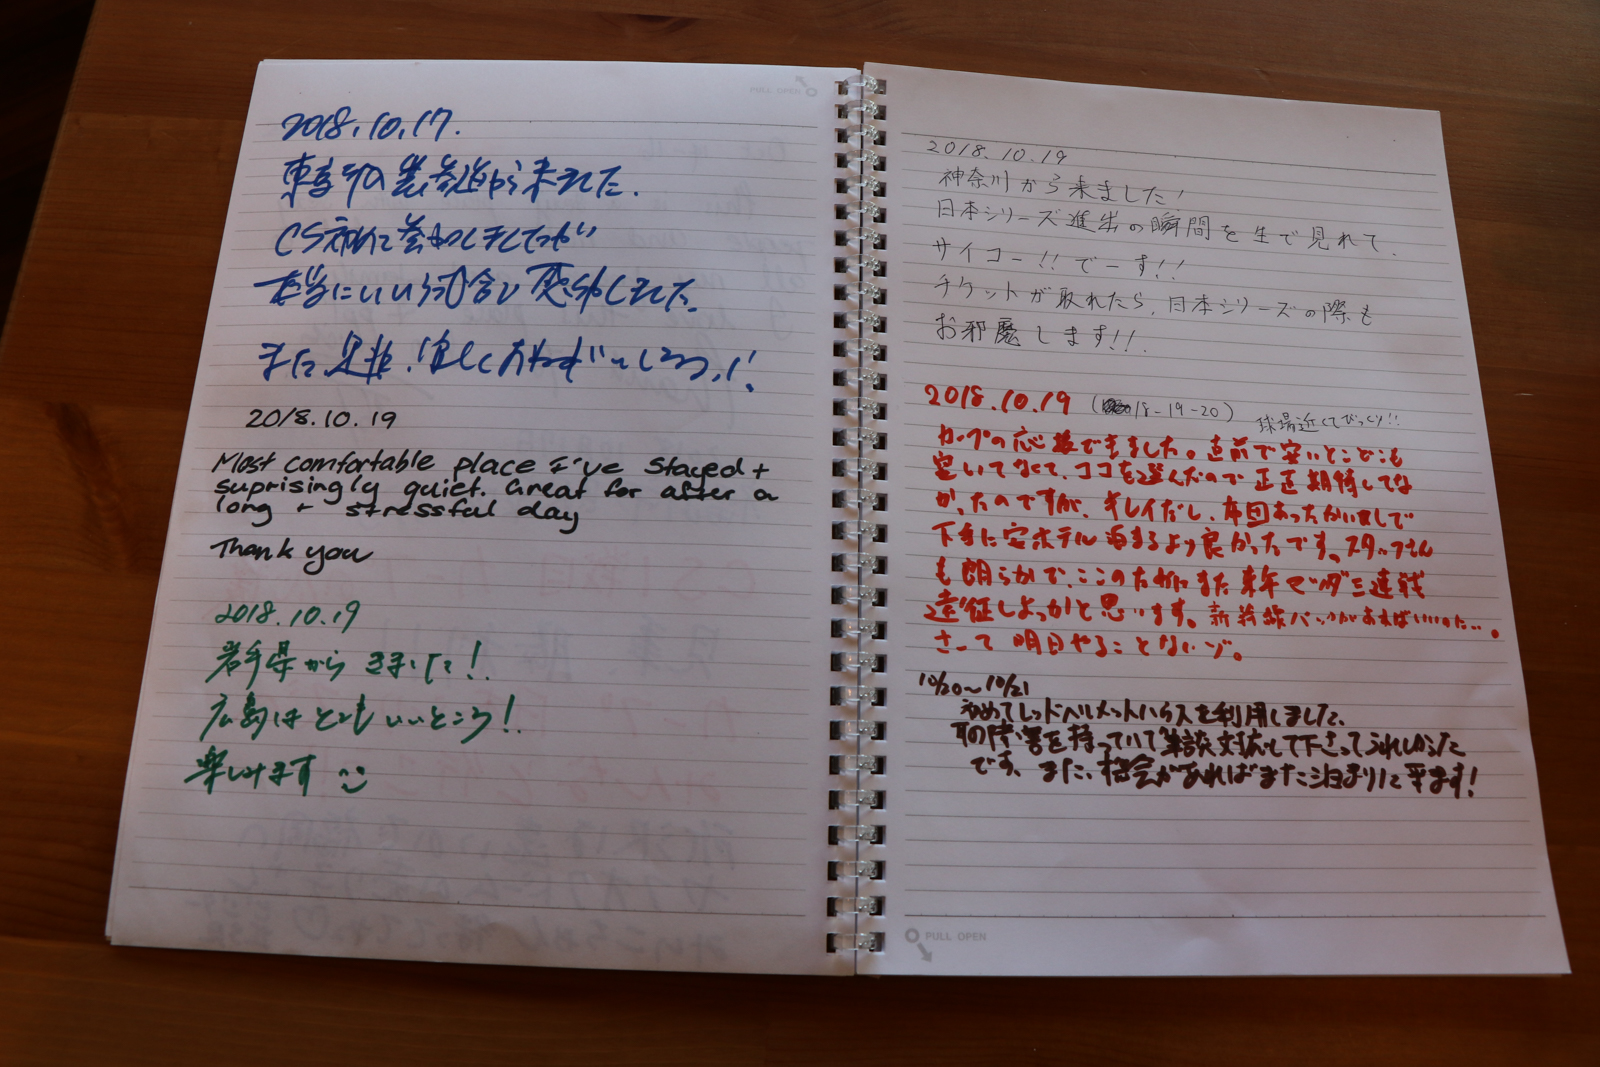 PULL OPEN
2018.10.17.
東京の表参道から来ました.
CS初に参加しましたが
本当にいい試合で感動しました
また是非!宜しくおねがいしまつ!!
2018.10.19
Most comfortable place I've stayed +
suprisingly quiet. Great for after a
long + stressful day
Thank you
2018.10.19
岩手県からきました!
広島はとてもいいところ!
楽しみます
2018.10.19
神奈川から来ました!
日本シリーズ進出の瞬間を生で見れて、
サイコー!!でーす!!
チケットが取れたら、日本シリーズの際も
お邪魔します!!
2018.10.19 (18-19-20) 球場近くてびっくり!!
カープの応援できました。直前で安いとこどこも
空いてなくて、ココを選んだので正直期待してな
かったのですが、キレイだし、布団あったかいしで
下手に安ホテル泊まるより良かったです。スタッフさん
も朗らかで、ここのためにまた来年マツダ三連戦
遠征しよっかと思います。新幹線パックがあればいいのに…。
さーて明日やることないゾ。
10/20〜10/21
初めてレッドヘルメットハウスを利用しました、
耳の障害を持っていて筆談対応して下さってうれしかった
です、また、機会があればまた泊まりに来ます!
PULL OPEN